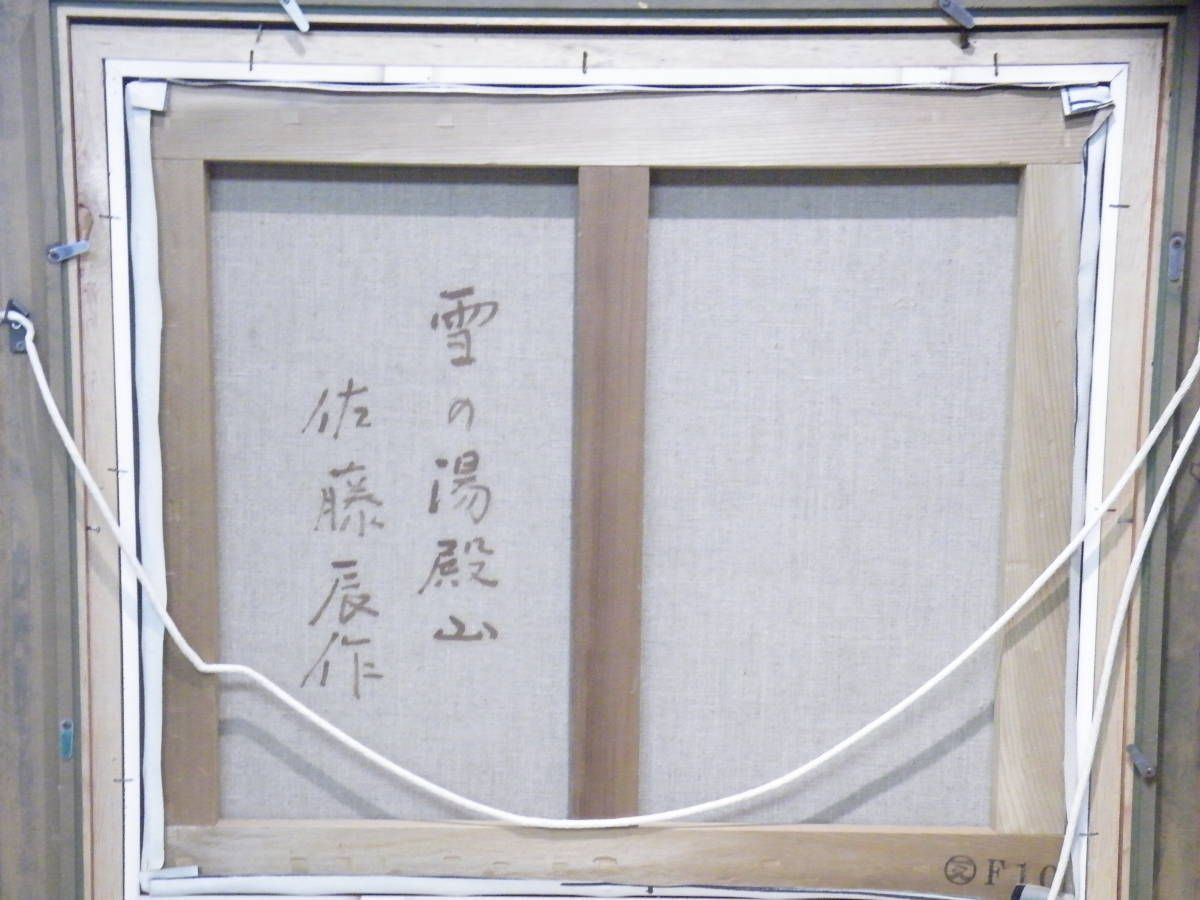 雪の湯殿山
佐藤辰作
F10